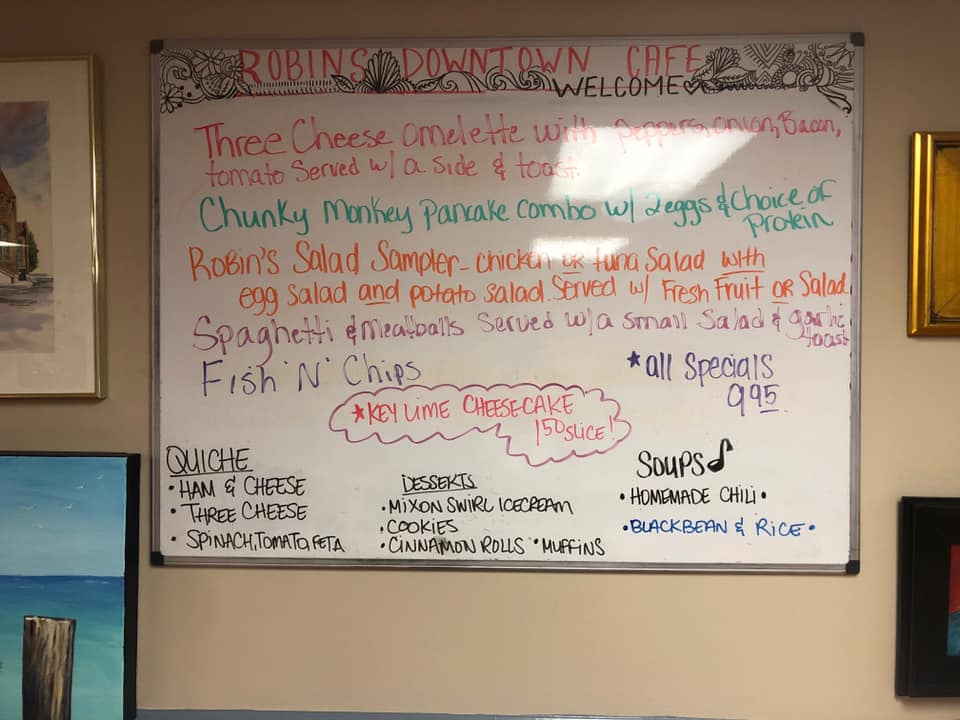 ROBINS DOWNTOWN CAFE
WELCOME
Three Cheese omelette with peppers, onion, Bacon,
tomato Served w/ a side & toast.
Chunky Monkey pancake combo w/ 2 eggs & Choice of
Protein
Robin's Salad Sampler - chicken or tuna Salad with
egg salad and potato salad. Served w/ Fresh Fruit or Salad
Spaghetti & Meatballs Served w/ a small Salad & garlic
toast
Fish 'N' Chips
*all Specials
9.95
*KEY LIME CHEESECAKE
1.50 SLICE!
QUICHE
• HAM & CHEESE
• THREE CHEESE
• SPINACH, TOMATO, FETA
DESSERTS
• MIXON SWIRL ICECREAM
• COOKIES
• CINNAMON ROLLS • MUFFINS
SOUPS
• HOMEMADE CHILI •
• BLACKBEAN & RICE •